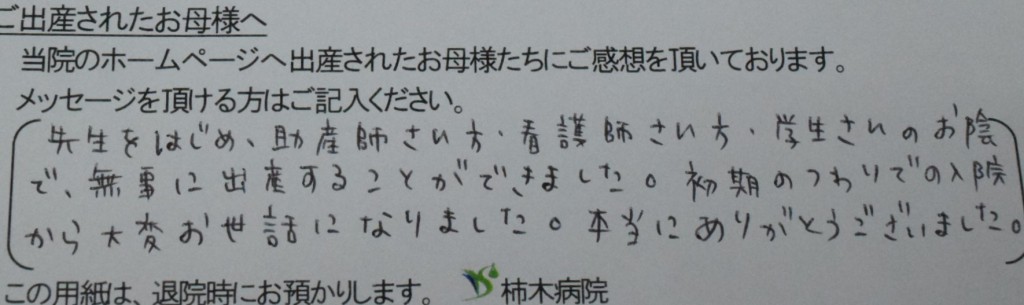 ご出産されたお母様へ
当院のホームページへ出産されたお母様たちにご感想を頂いております。
メッセージを頂ける方はご記入ください。
先生をはじめ、助産師さん方・看護師さん方・学生さんのお陰
で、無事に出産することができました。初期のつわりでの入院
から大変お世話になりました。本当にありがとうございました。
この用紙は、退院時にお預かりします。 柿木病院